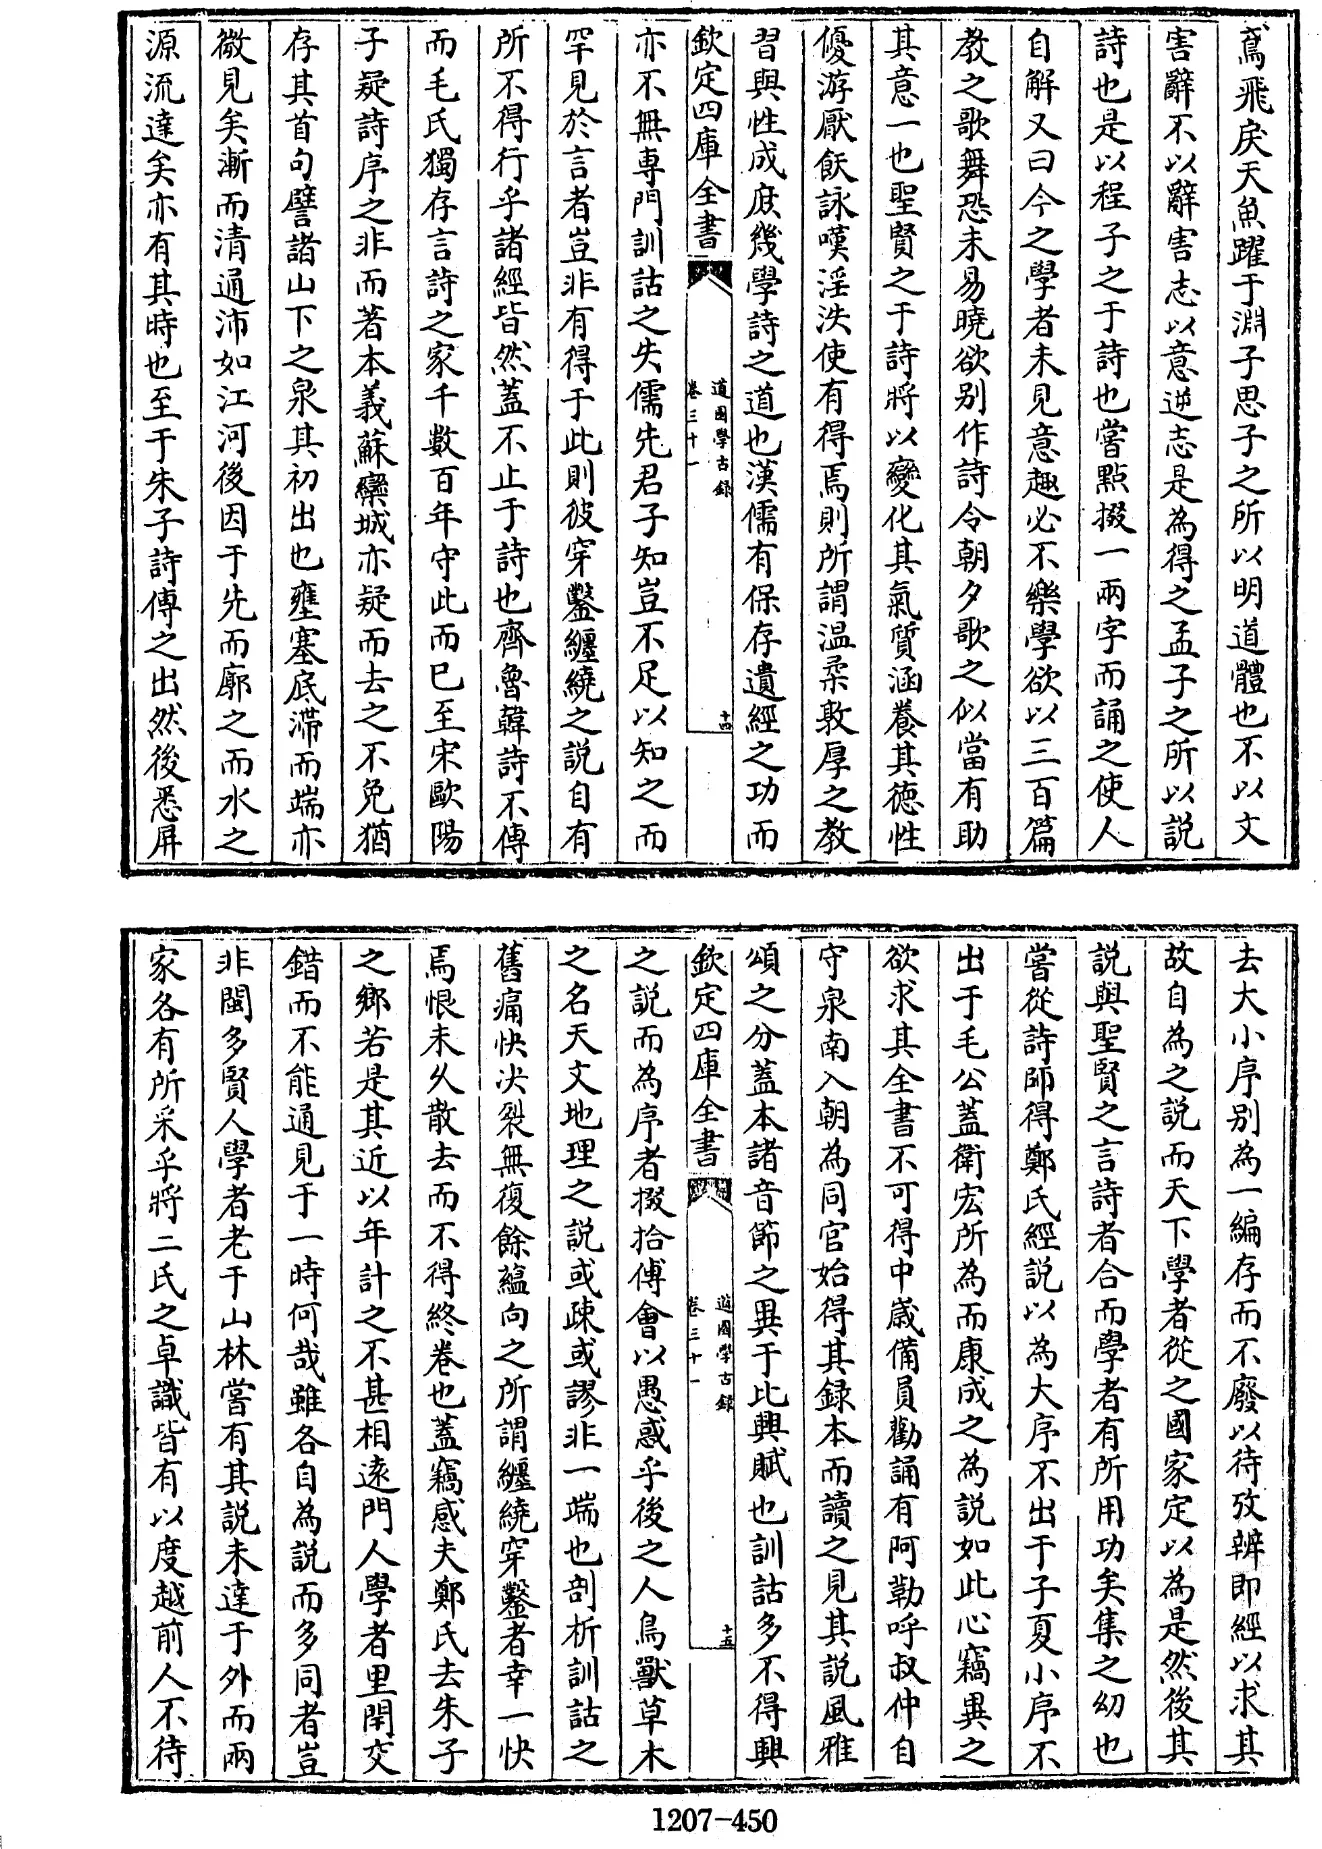 鳶飛戾天魚躍于淵子思子之所以明道體也不以文
害辭不以辭害志以意逆志是為得之孟子之所以説
詩也是以程子之于詩也嘗點掇一兩字而誦之使人
自解又曰今之學者未見意趣必不樂學欲以三百篇
教之歌舞恐未易曉欲别作詩令朝夕歌之似當有助
其意一也聖賢之于詩將以變化其氣質涵養其徳性
優游厭飫詠嘆淫泆使有得焉則所謂温柔敦厚之教
習與性成庻幾學詩之道也漢儒有保存遺經之功而
欽定四庫全書
道園學古録
卷三十一
十四
亦不無專門訓詁之失儒先君子知豈不足以知之而
罕見於言者豈非有得于此則彼穿鑿纒繞之説自有
所不得行乎諸經皆然蓋不止于詩也齊魯韓詩不傳
而毛氏獨存言詩之家千數百年守此而已至宋歐陽
子疑詩序之非而著本義蘇欒城亦疑而去之不免猶
存其首句譬諸山下之泉其初出也壅塞底滯而端亦
微見矣漸而清通沛如江河後因于先而廓之而水之
源流達矣亦有其時也至于朱子詩傳之出然後悉屏
去大小序别為一編存而不廢以待攷辨即經以求其
故自為之説而天下學者從之國家定以為是然後其
説與聖賢之言詩者合而學者有所用功矣集之幼也
嘗從詩師得鄭氏經説以為大序不出于子夏小序不
出于毛公蓋衛宏所為而康成之為説如此心竊異之
欲求其全書不可得中嵗備員勸誦有阿勒呼叔仲自
守泉南入朝為同官始得其録本而讀之見其説風雅
頌之分蓋本諸音節之異于比興賦也訓詁多不得興
欽定四庫全書
道園學古録
卷三十一
十五
之説而為序者掇拾傅會以愚惑乎後之人鳥獸草木
之名天文地理之説或疎或謬非一端也剖析訓詁之
舊痛快决裂無復餘蘊向之所謂纒繞穿鑿者幸一快
焉恨未乆散去而不得終卷也蓋竊感夫鄭氏去朱子
之鄉若是其近以年計之不甚相逺門人學者里閈交
錯而不能通見于一時何哉雖各自為説而多同者豈
非閩多賢人學者老于山林嘗有其説未達于外而兩
家各有所采乎將二氏之卓識皆有以度越前人不待
1207-450